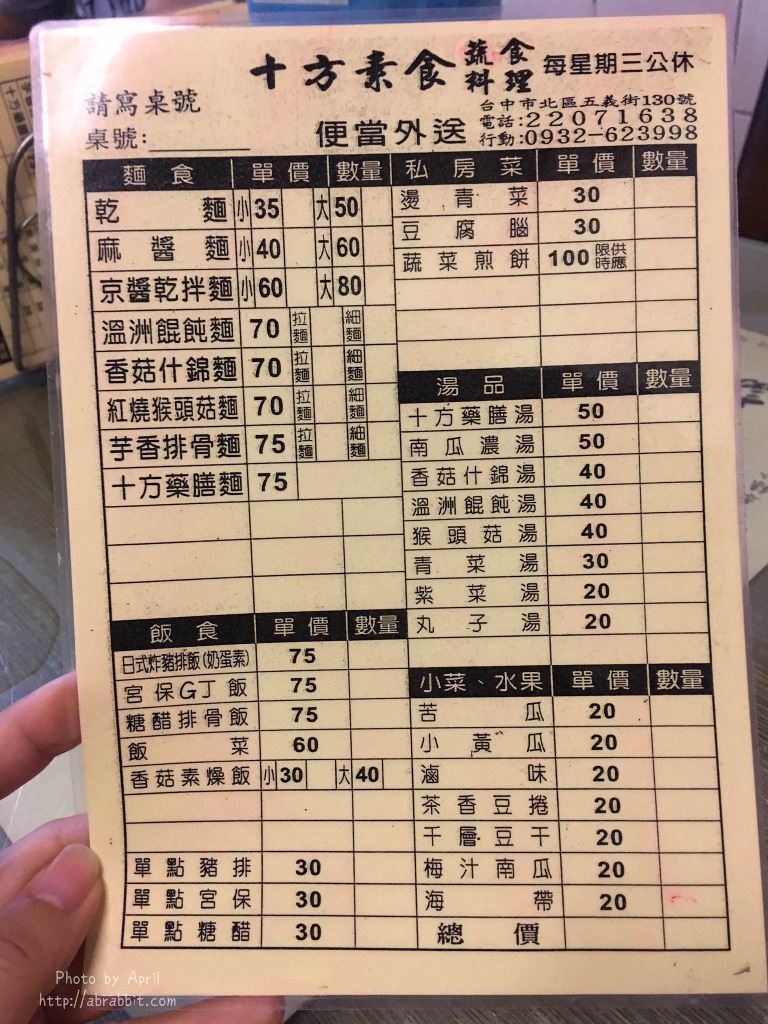 十方素食 蔬食料理 每星期三公休
請寫桌號
桌號:
便當外送
台中市北區五義街130號
電話:22071638
行動:0932-623998
麵食 單價 數量
乾麵 小 35 大 50
麻醬麵 小 40 大 60
京醬乾拌麵 小 60 大 80
溫洲餛飩麵 70 拉麵 細麵
香菇什錦麵 70 拉麵 細麵
紅燒猴頭菇麵 70 拉麵 細麵
芋香排骨麵 75 拉麵 細麵
十方藥膳麵 75
飯食 單價 數量
日式炸豬排飯(奶蛋素) 75
宮保G丁飯 75
糖醋排骨飯 75
飯菜 60
香菇素燥飯 小 30 大 40
單點豬排 30
單點宮保 30
單點糖醋 30
私房菜 單價 數量
燙青菜 30
豆腐腦 30
蔬菜煎餅 100 限時供應
湯品 單價 數量
十方藥膳湯 50
南瓜濃湯 50
香菇什錦湯 40
溫洲餛飩湯 40
猴頭菇湯 40
青菜湯 30
紫菜湯 20
丸子湯 20
小菜、水果 單價 數量
苦瓜 20
小黃瓜 20
滷味 20
茶香豆捲 20
千層豆干 20
梅汁南瓜 20
海帶 20
總價
Photo by April
http://abrabbit.com